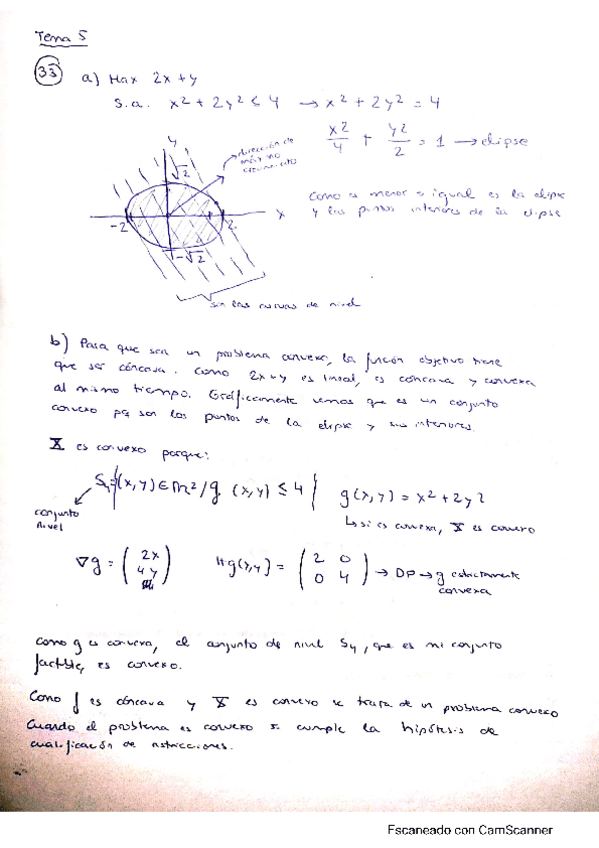 Tema 5
33 a) Max 2x+y
s.a. x² + 2y² ≤ 4 → x² + 2y² = 4
x²/4 + y²/2 = 1 → elipse
y
dirección de
máximo
crecimiento
√2
Como es menor o igual es la elipse
y los puntos interiores de la elipse
-2 2 x
-√2
son las curvas de nivel
b) Para que sea un problema convexo, la función objetivo tiene
que ser cóncava. Como 2x+y es lineal, es cóncava y convexa
al mismo tiempo. Gráficamente vemos que es un conjunto
convexo pq son los puntos de la elipse y sus interiores.
X es convexo porque:
S₄={(x,y)∈R²/g(x,y) ≤ 4} g(x,y) = x²+2y²
conjunto
nivel
↳ si es convexa, X es convexo
∇g = (2x 4y) Hg(x,y) = (2 0 0 4) → DP → g estrictamente
convexa
como g es convexa, el conjunto de nivel S₄, que es mi conjunto
factible, es convexo.
Como f es cóncava y X es convexo se trata de un problema convexo
Cuando el problema es convexo se cumple la hipótesis de
cualificación de restricciones.
Escaneado con CamScanner